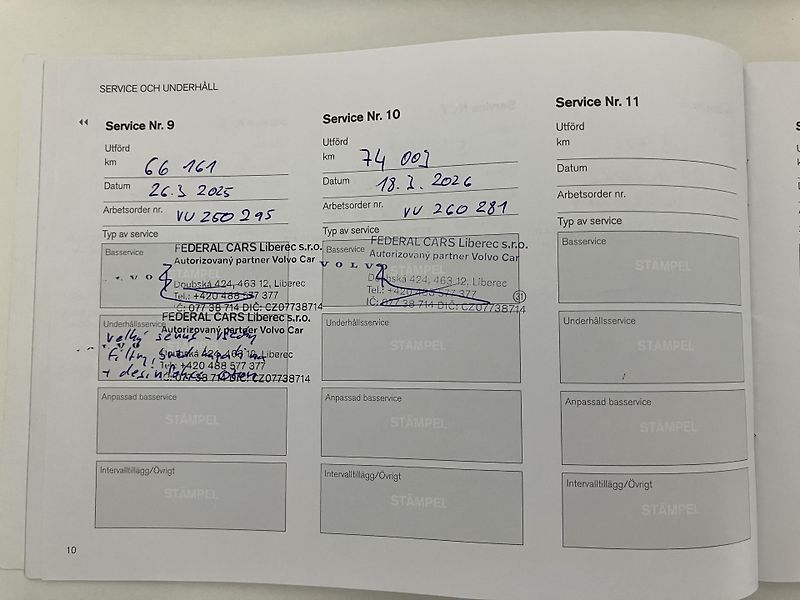 SERVICE OCH UNDERHÅLL
Service Nr. 9
Utförd
km 66 161
Datum 26.3 2025
Arbetsorder nr. VU 260 295
Typ av service
Basservice
STÄMPEL
VOLVO
FEDERAL CARS Liberec s.r.o.
Autorizovaný partner Volvo Car
Doubská 424, 463 12, Liberec
Tel.: +420 488 577 377
IČ: 077 38 714 DIČ: CZ07738714
Underhållsservice
FEDERAL CARS Liberec s.r.o.
Autorizovaný partner Volvo Car
Doubská 424, 463 12, Liberec
Tel.: +420 488 577 377
IČ: 077 38 714 DIČ: CZ07738714
velký servis - všechny
filtry,
+ desinfekce
Anpassad basservice
STÄMPEL
Intervalltillägg/Övrigt
STÄMPEL
10
Service Nr. 10
Utförd
km 74 003
Datum 18.3. 2026
Arbetsorder nr. VU 260 281
Typ av service
Basservice
STÄMPEL
VOLVO
FEDERAL CARS Liberec s.r.o.
Autorizovaný partner Volvo Car
Doubská 424, 463 12, Liberec
Tel.: +420 488 577 377
IČ: 077 38 714 DIČ: CZ07738714
31
Underhållsservice
STÄMPEL
Anpassad basservice
STÄMPEL
Intervalltillägg/Övrigt
STÄMPEL
Service Nr. 11
Utförd
km
Datum
Arbetsorder nr.
Typ av service
Basservice
STÄMPEL
Underhållsservice
STÄMPEL
Anpassad basservice
STÄMPEL
Intervalltillägg/Övrigt
STÄMPEL